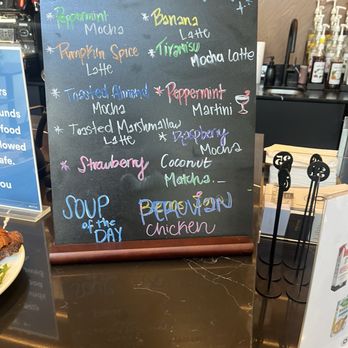 Peppermint
Mocha
* Pumpkin Spice
Latte
* Toasted Almond
Mocha
* Toasted Marshmallow
Latte
* Strawberry Coconut
Matcha
* Banana
Latte
* Tiramisu
Mocha Latte
* Peppermint
Martini
* Raspberry
Mocha
SOUP
of the
DAY
chicken
ers
unds
food
lowed
afe.
you